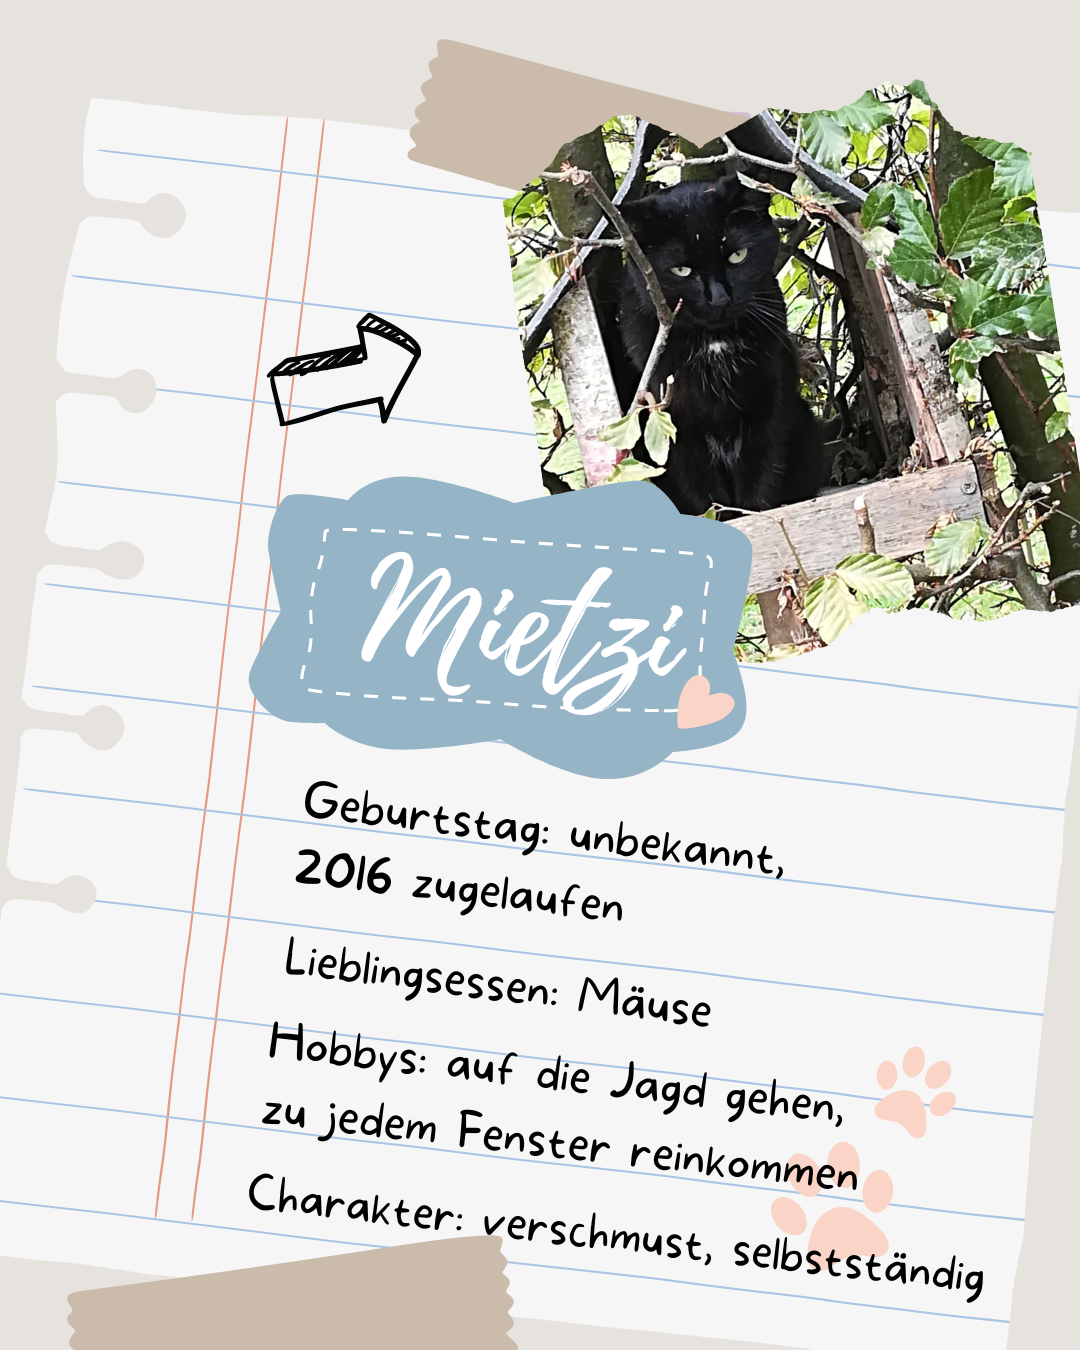 Mietzi
Geburtstag: unbekannt,
2016 zugelaufen
Lieblingsessen: Mäuse
Hobbys: auf die Jagd gehen,
zu jedem Fenster reinkommen
Charakter: verschmust, selbstständig